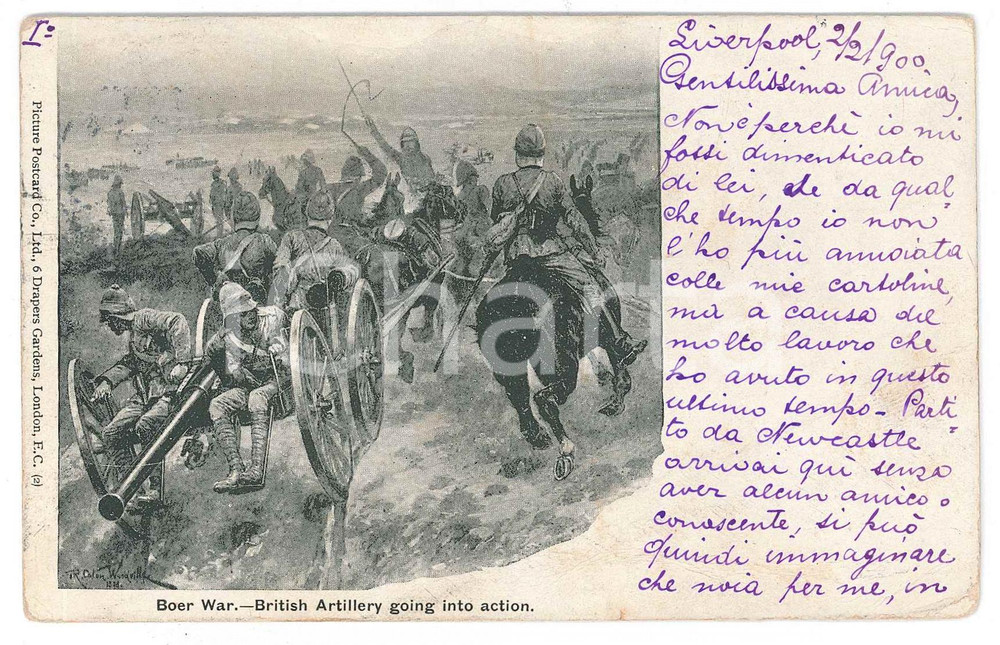 I°
Picture Postcard Co., Ltd., 6 Drapers Gardens, London, E.C. (2)
Liverpool, 2/2/900
Gentilissima Amica,
Non è perchè io mi
fossi dimenticato
di lei, se da qual=
che tempo io non
l'ho più annoiata
colle mie cartoline,
ma a causa del
molto lavoro che
ho avuto in questo
ultimo tempo - Parti=
to da Newcastle
arrivai quì senza
aver alcun amico o
conoscente, si può
quindi immaginare
che noia per me, in
R. Caton Woodville
Boer War.—British Artillery going into action.
Charta